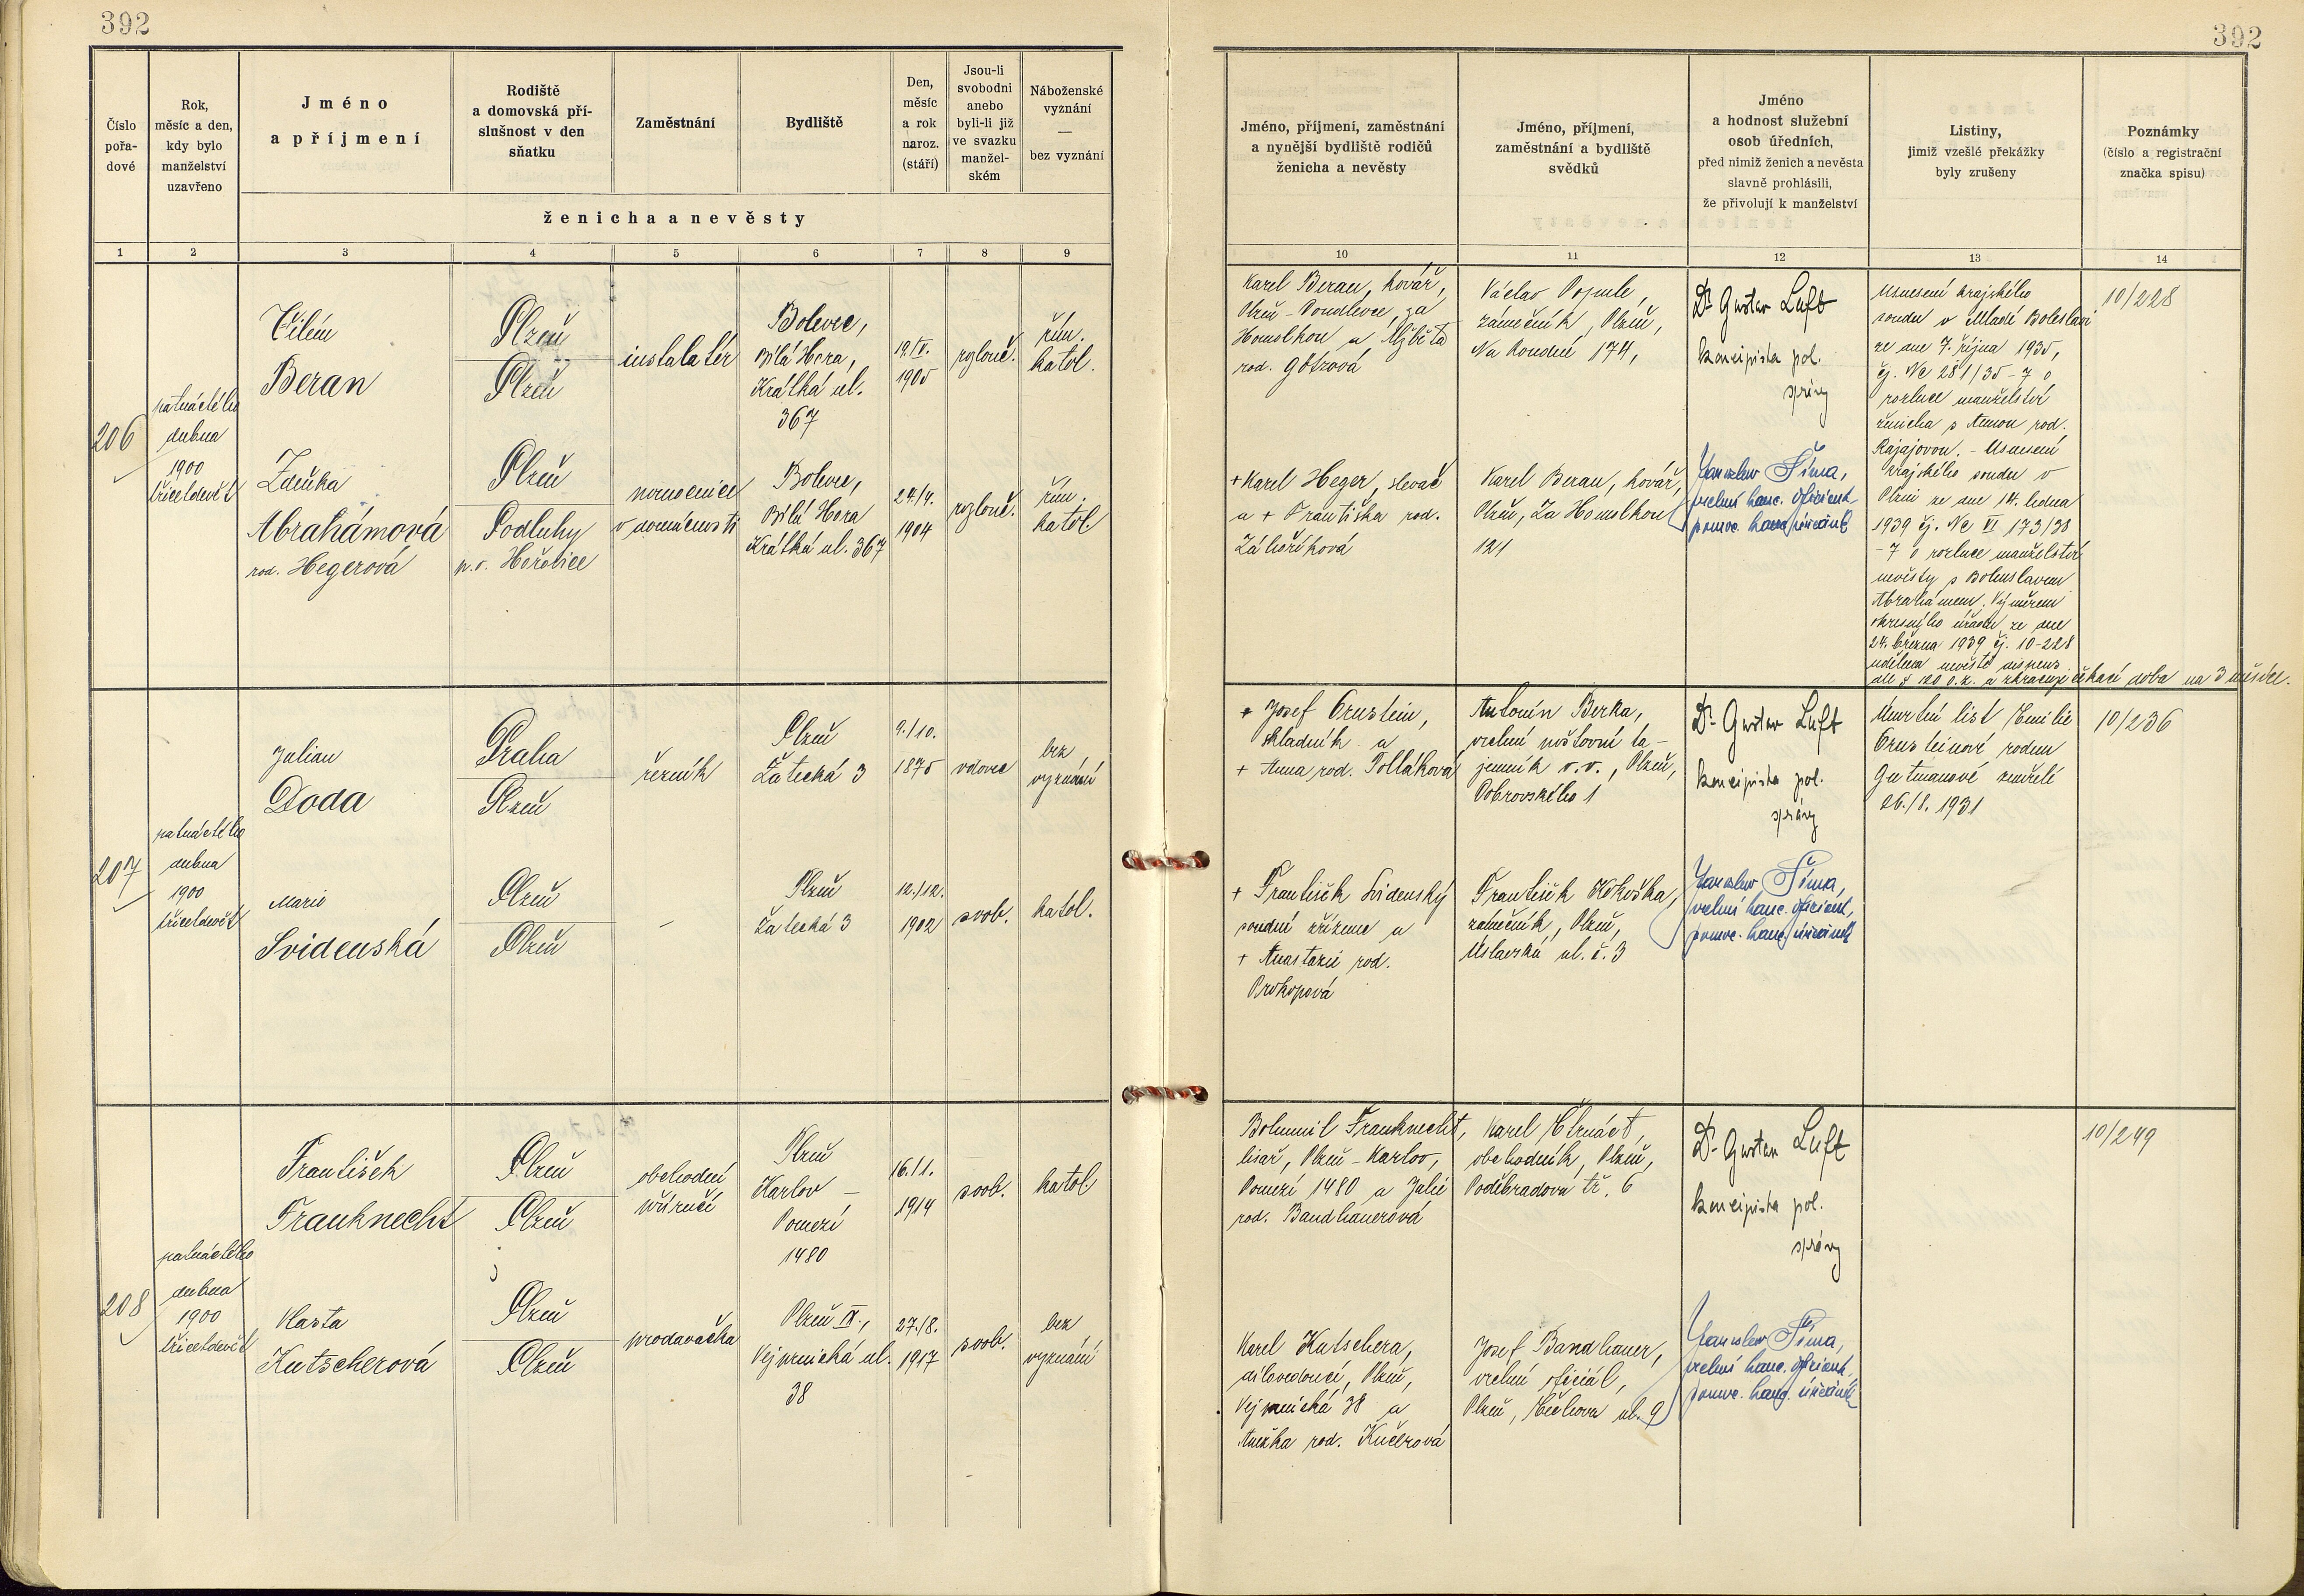 392
392
Číslo
pořa-
dové
Rok,
měsíc a den,
kdy bylo
manželství
uzavřeno
Jméno
a příjmení
Rodiště
a domovská pří-
slušnost v den
sňatku
Zaměstnání
Bydliště
Den,
měsíc
a rok
naroz.
(stáří)
Jsou-li
svobodni
anebo
byli-li již
ve svazku
manžel-
ském
Náboženské
vyznání
—
bez vyznání
ženicha a nevěsty
Jméno, příjmení, zaměstnání
a nynější bydliště rodičů
ženicha a nevěsty
Jméno, příjmení,
zaměstnání a bydliště
svědků
Jméno
a hodnost služební
osob úředních,
před nimiž ženich a nevěsta
slavně prohlásili,
že přivolují k manželství
Listiny,
jimiž vzešlé překážky
byly zrušeny
Poznámky
(číslo a registrační
značka spisu)
1 2 3 4 5 6 7 8 9
10 11 12 13 14
206
patnáctého
dubna
1900
třicetdevět
Vilém
Beran
Plzeň
Plzeň
instalatér
Bolevec,
Bílá Hora,
Krátká ul.
367
19./IV.
1905
rozlouč.
řím.
katol.
Karel Beran, kovář,
Plzeň - Doudlevce, za
Homolkou a Alžběta
rod. Götzová
Václav
zámečník, Plzeň,
Na Roudné 174,
Dr Gustav Luft
koncipista pol.
správy
Usnesení krajského
soudu v Mladé Boleslavi
ze dne 7. října 1935,
čj. Nc 281/35 - 7 o
rozluce manželství
ženicha s Annou rod.
Rájajovou. - Usnesení
krajského soudu v
Plzni ze dne 14. ledna
1939 čj. Nc VI 173/38
- 7 o rozluce manželství
nevěsty s Bohuslavem
Abrahámem. Výměrem
okresního úřadu ze dne
24. března 1939 čj. 10-228
udělena nevěstě dispens
dle § 120 o.z. a zkrácuje čekací doba na 3 měsíce.
10/228
Zdeňka
Abrahámová
rod. Hegerová
Plzeň
Podluhy
p.o. Hořovice
pomocnice
v domácnosti
Bolevec,
Bílá Hora
Krátká ul. 367
24/4.
1904
rozlouč.
řím.
katol
+ Karel Heger, slevač
a + Františka rod.
Záhoříková
Karel Beran, kovář,
Plzeň, Za Homolkou
121
Jaroslav Šíma,
vrchní kanc. oficiant
pomoc. kanc. úředník
207
patnáctého
dubna
1900
třicetdevět
Julian
Doda
Praha
Plzeň
řezník
Plzeň
Žatecká 3
9./10.
1875
vdovec
bez
vyznání
+ Josef Ornstein,
skladník a
+ Anna rod. Polláková
Antonín Berka,
vrchní poštovní ta-
jemník v.v., Plzeň,
Dobrovského 1
Dr. Gustav Luft
koncipista pol.
správy
Úmrtní list Emilie
Ornsteinové rodem
Gutmanové zemřelé
26./8. 1931
10/236
Marie
Svidenská
Plzeň
Plzeň
-
Plzeň
Žatecká 3
12./12.
1902
svob.
katol.
+ František Svidenský
soudní zřízenec a
+ Anastazie rod.
Prokopová
František Kokoška,
zámečník, Plzeň,
Úslavská ul. č. 3
Jaroslav Šíma,
vrchní kanc. oficiant,
pomoc. kanc. úředník
208
patnáctého
dubna
1900
třicetdevět
František
Frauknecht
Plzeň
Plzeň
obchodní
příručí
Plzeň
Karlov -
Pomezí
1480
16./1.
1914
svob.
katol.
Bohumil Frauknecht,
lisař, Plzeň - Karlov,
Pomezí 1480 a Julie
rod. Bandhauerová
Karel Čtrnáct,
obchodník, Plzeň,
Poděbradova tř. 6
Dr. Gustav Luft
koncipista pol.
správy
10/249
Marta
Kutscherová
Plzeň
Plzeň
prodavačka
Plzeň IX.,
Vejprnická ul.
38
27./8.
1917
svob.
bez
vyznání
Karel Kutschera,
dílovedoucí, Plzeň,
Vejprnická 38 a
Anežka rod. Kučerová
Josef Bandhauer,
vrchní oficiál,
Plzeň, Čechova ul. 9
Jaroslav Šíma,
vrchní kanc. oficiant,
pomoc. kanc. úředník